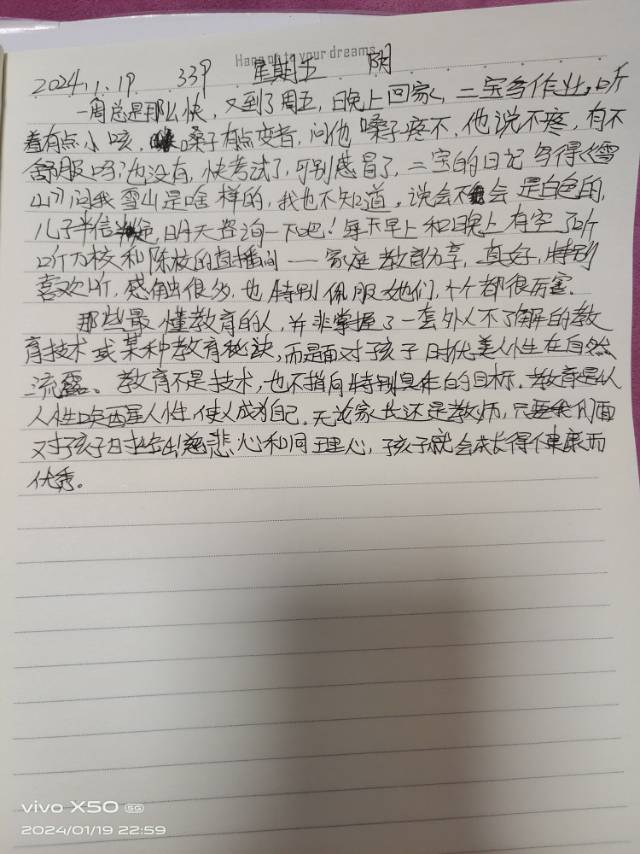 Hang on to your dreams
2024.1.19 339 星期五 阴
一周总是那么快，又到了周五，晚上回家，二宝写作业，听
着有点小咳，嗓子有点变音，问他嗓子疼不，他说不疼，有不
舒服吗？也没有，快考试了，可别感冒了，二宝的日记写得《雪
山》问我雪山是啥样的，我也不知道，说会不会是白色的，
儿子半信半疑，明天咨询一下吧！每天早上和晚上有空了听
听万校和陈校的直播间——家庭教育分享，真好，特别
喜欢听，感触很多，也特别佩服她们，个个都很厉害．
那些最懂教育的人，并非掌握了一套外人不了解的教
育技术或某种教育秘诀，而是面对孩子时优美人性在自然
流露。教育不是技术，也不指向特别具体的目标．教育是以
人性唤醒人性，使人成为自己．无论家长还是教师，只要我们面
对孩子时拿出慈悲心和同理心，孩子就会成长得健康而
优秀。
vivo X50 5G
2024/01/19 22:59